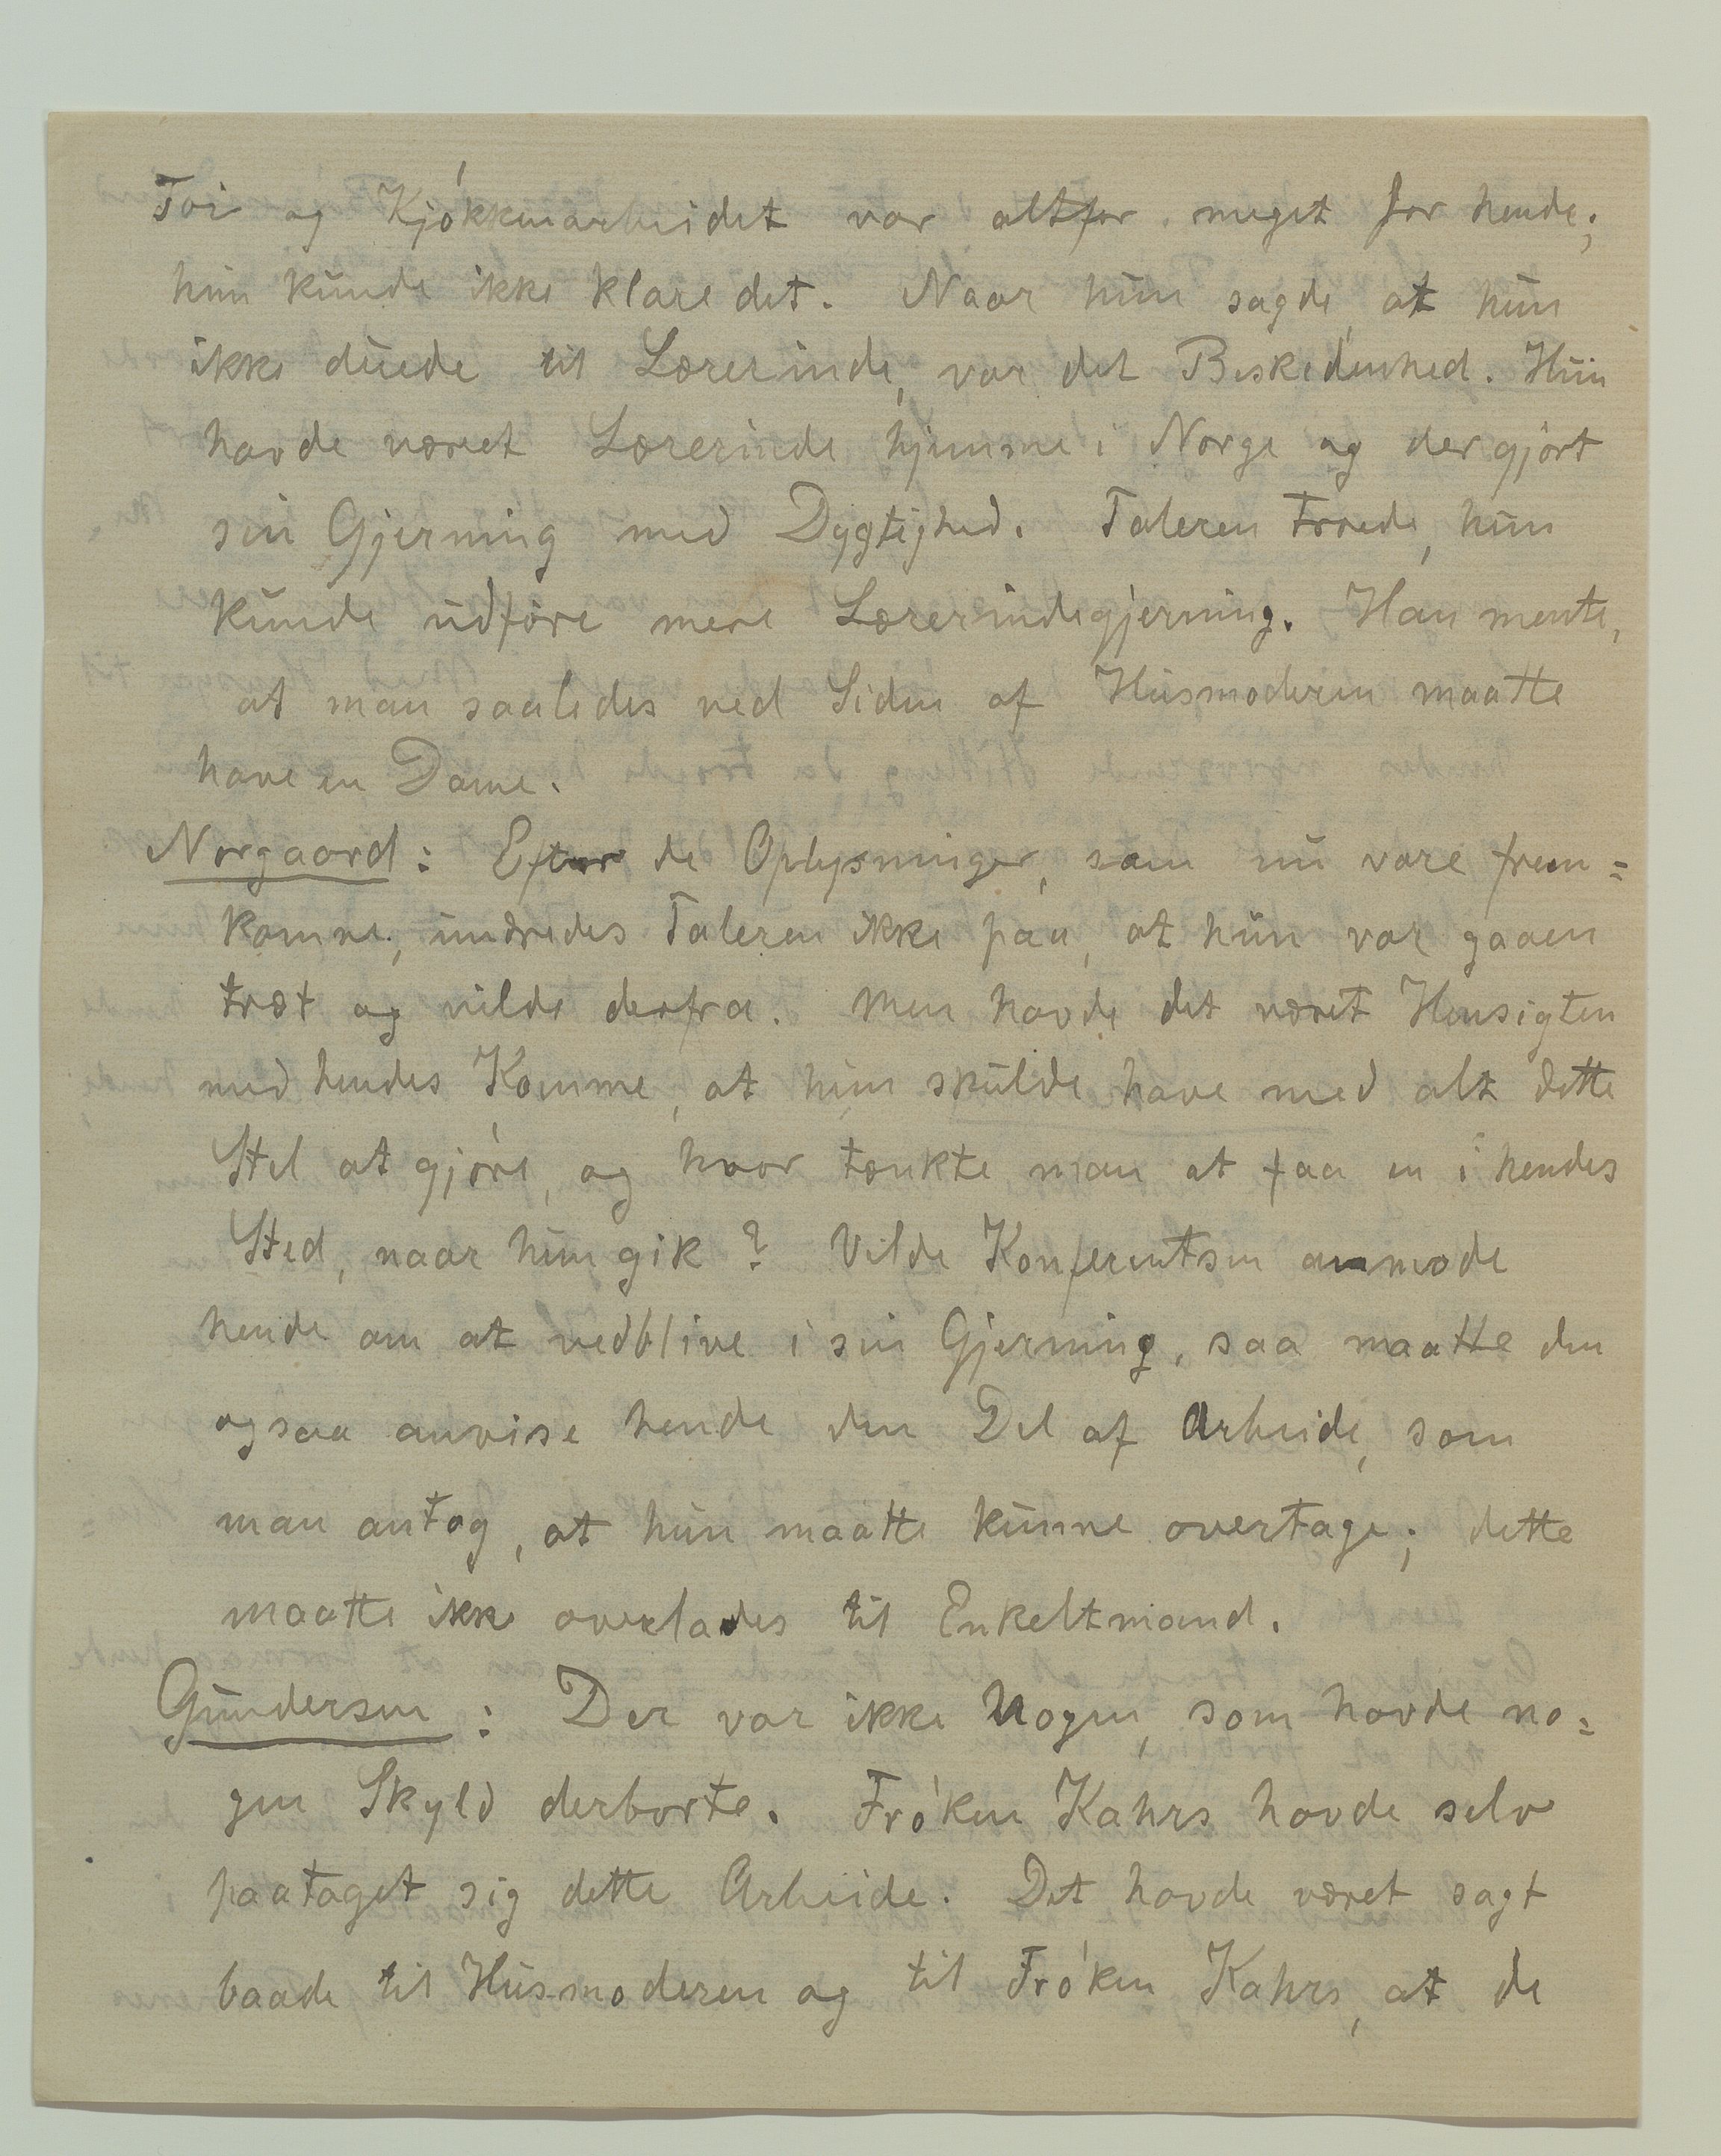 Töi og Kjøkkenarbeidet var altfor meget for hende;
hun kunde ikke klare det. Naar hun sagde, at hun
ikke duede til Lærerinde, var det Beskedenhed. Hun
havde været Lærerinde hjemme i Norge og der gjort
sin Gjerning med Dygtighed. Taleren troede, hun
kunde udføre mere Lærerindegjerning. Han mente,
at man saaledes ved Siden af Husmoderen maatte
have en Dame.
Norgaard: Efter de Oplysninger, som nu vare frem=
komne, undredes Taleren ikke paa, at hun var gaaen
træt og vilde derfra. Men havde det været Hensigten
med hendes Komme, at hun skulde have med alt dette
Stel at gjøre, og hvor tænkte man at faa en i hendes
Sted, naar hun gik? Vilde Konferentsen anmode
hende om at vedblive i sin Gjerning, saa maatte den
ogsaa anvise hende den Del af Arbeide, som
man antog, at hun maatte kunne overtage; dette
maatte ikke overlades til Enkeltmand.
Gundersen: Der var ikke Nogen, som havde no=
gen Skyld derborte. Frøken Kahrs havde selv
paataget sig dette Arbeide. Det havde været sagt
baade til Husmoderen og til Frøken Kahrs, at de